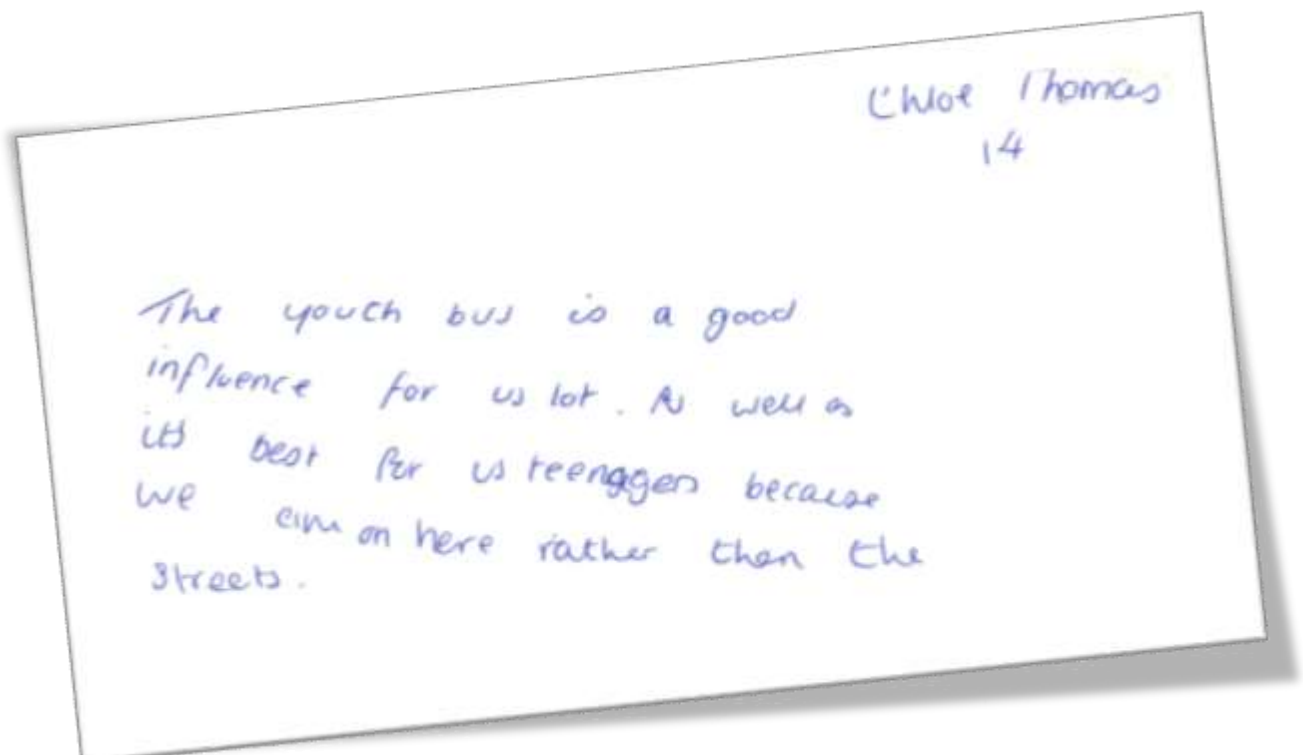 Chloe Thomas
14
The youth bus is a good
influence for us lot. As well as
its best for us teenagers because
we on here rather than the
streets.